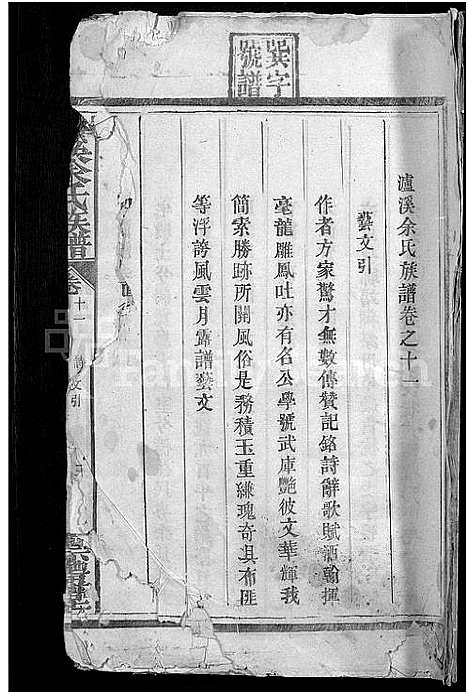 巽字
號譜
瀘溪余氏族譜卷之十一
藝文引
作者方家驚才無數傳贊記銘詩辭歌賦灑翰揮
毫龍雕鳳吐亦有名公學號武庫艷彼文華輝我
簡索勝跡所關風俗是務積玉重縑瑰奇具布匪
等浮誇風雲月露譜藝文
余氏族譜
卷十一
文引